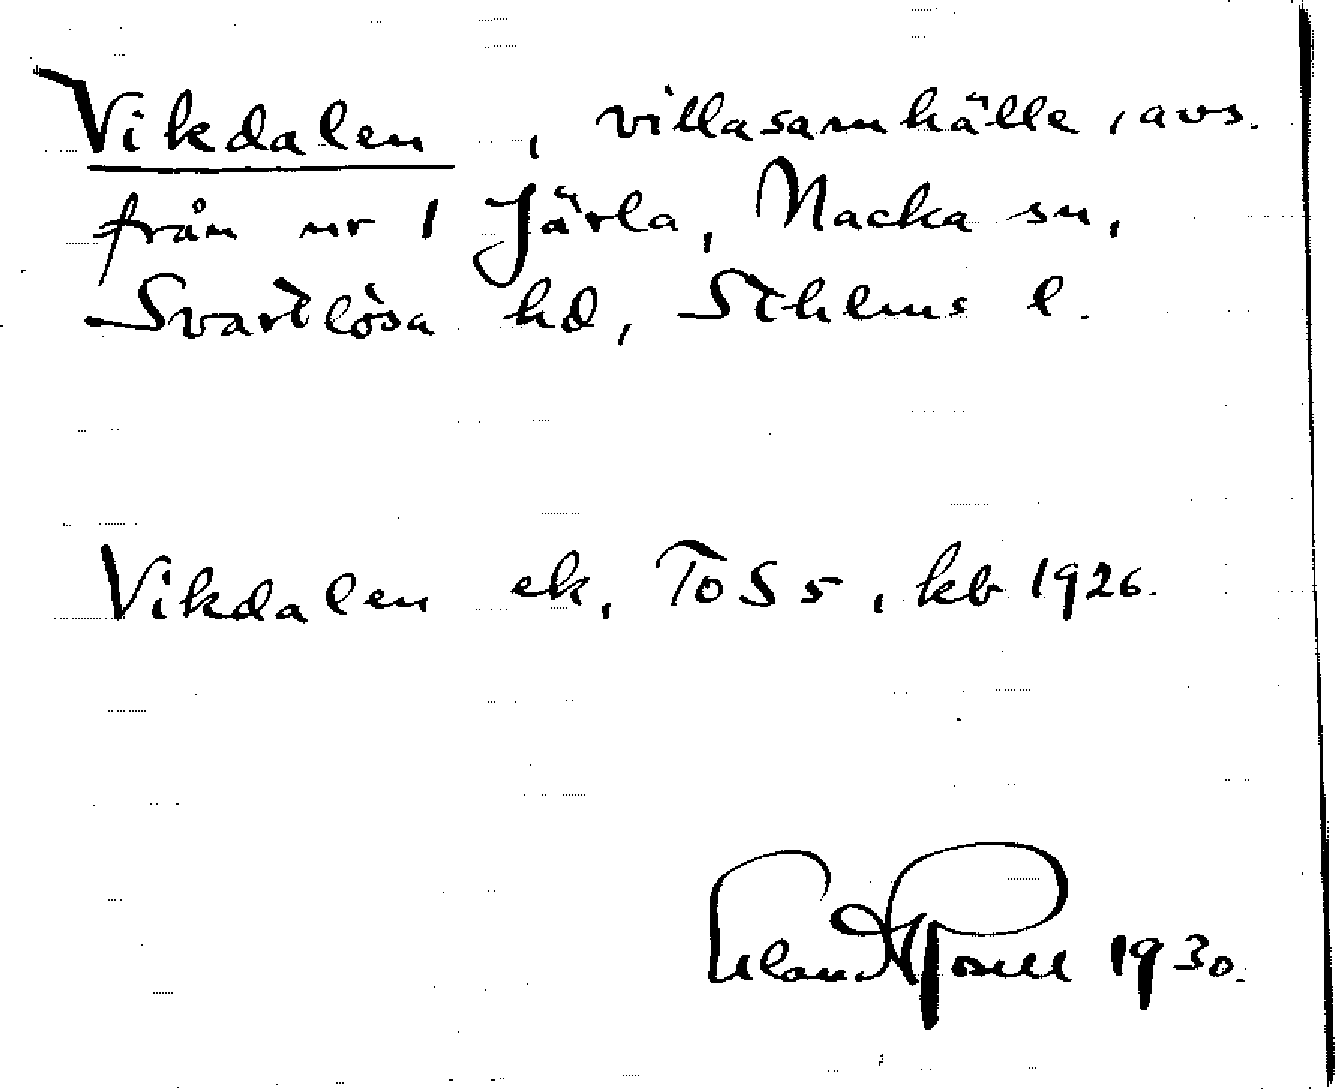 Vikdalen, villasamhälle, avs.
från nr 1 Järla, Nacka sn,
Svartlösa hd, Sthlms l.
Vikdalen ek, ToS 5, kb 1926.
Erland Rosell 1930.